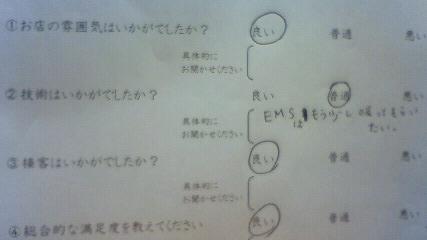 ①お店の雰囲気はいかがでしたか？ 良い 普通 悪い
具体的に
お聞かせください
②技術はいかがでしたか？ 良い 普通 悪い
具体的に
お聞かせください
EMSはもう少し
もらい
たい。
③接客はいかがでしたか？ 良い 普通 悪い
具体的に
お聞かせください
④総合的な満足度を教えてください 良い 普通 悪い